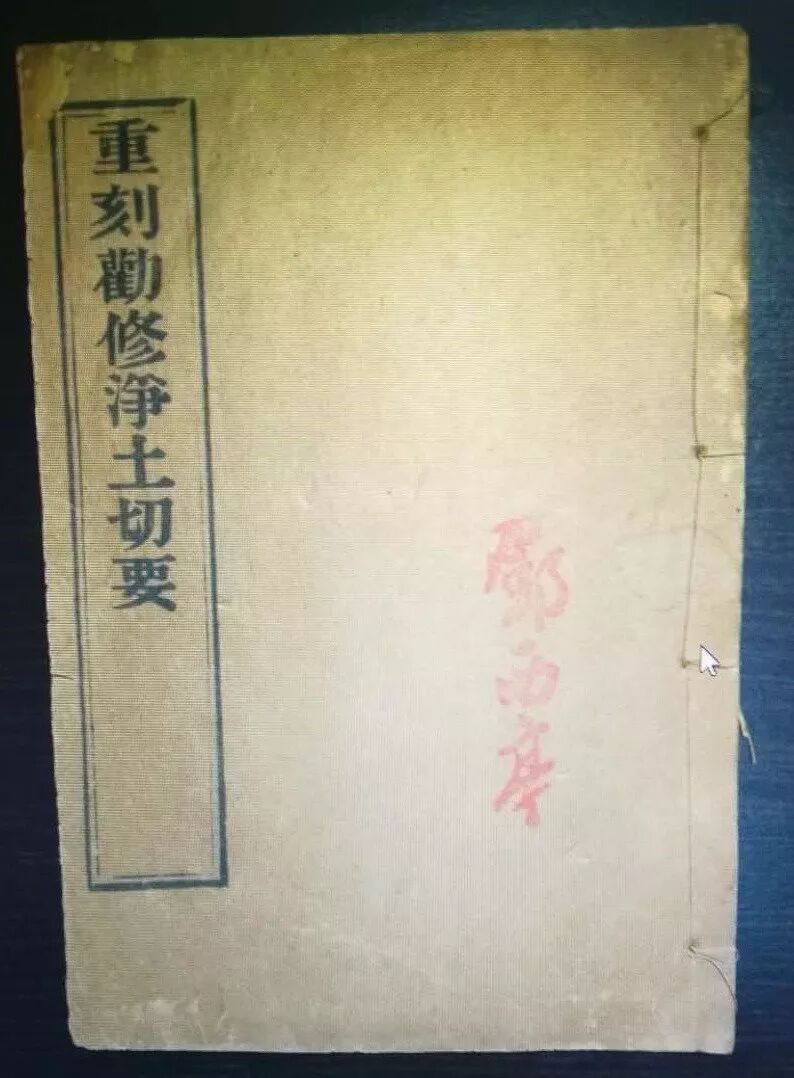 重刻勸修淨土切要
西亭